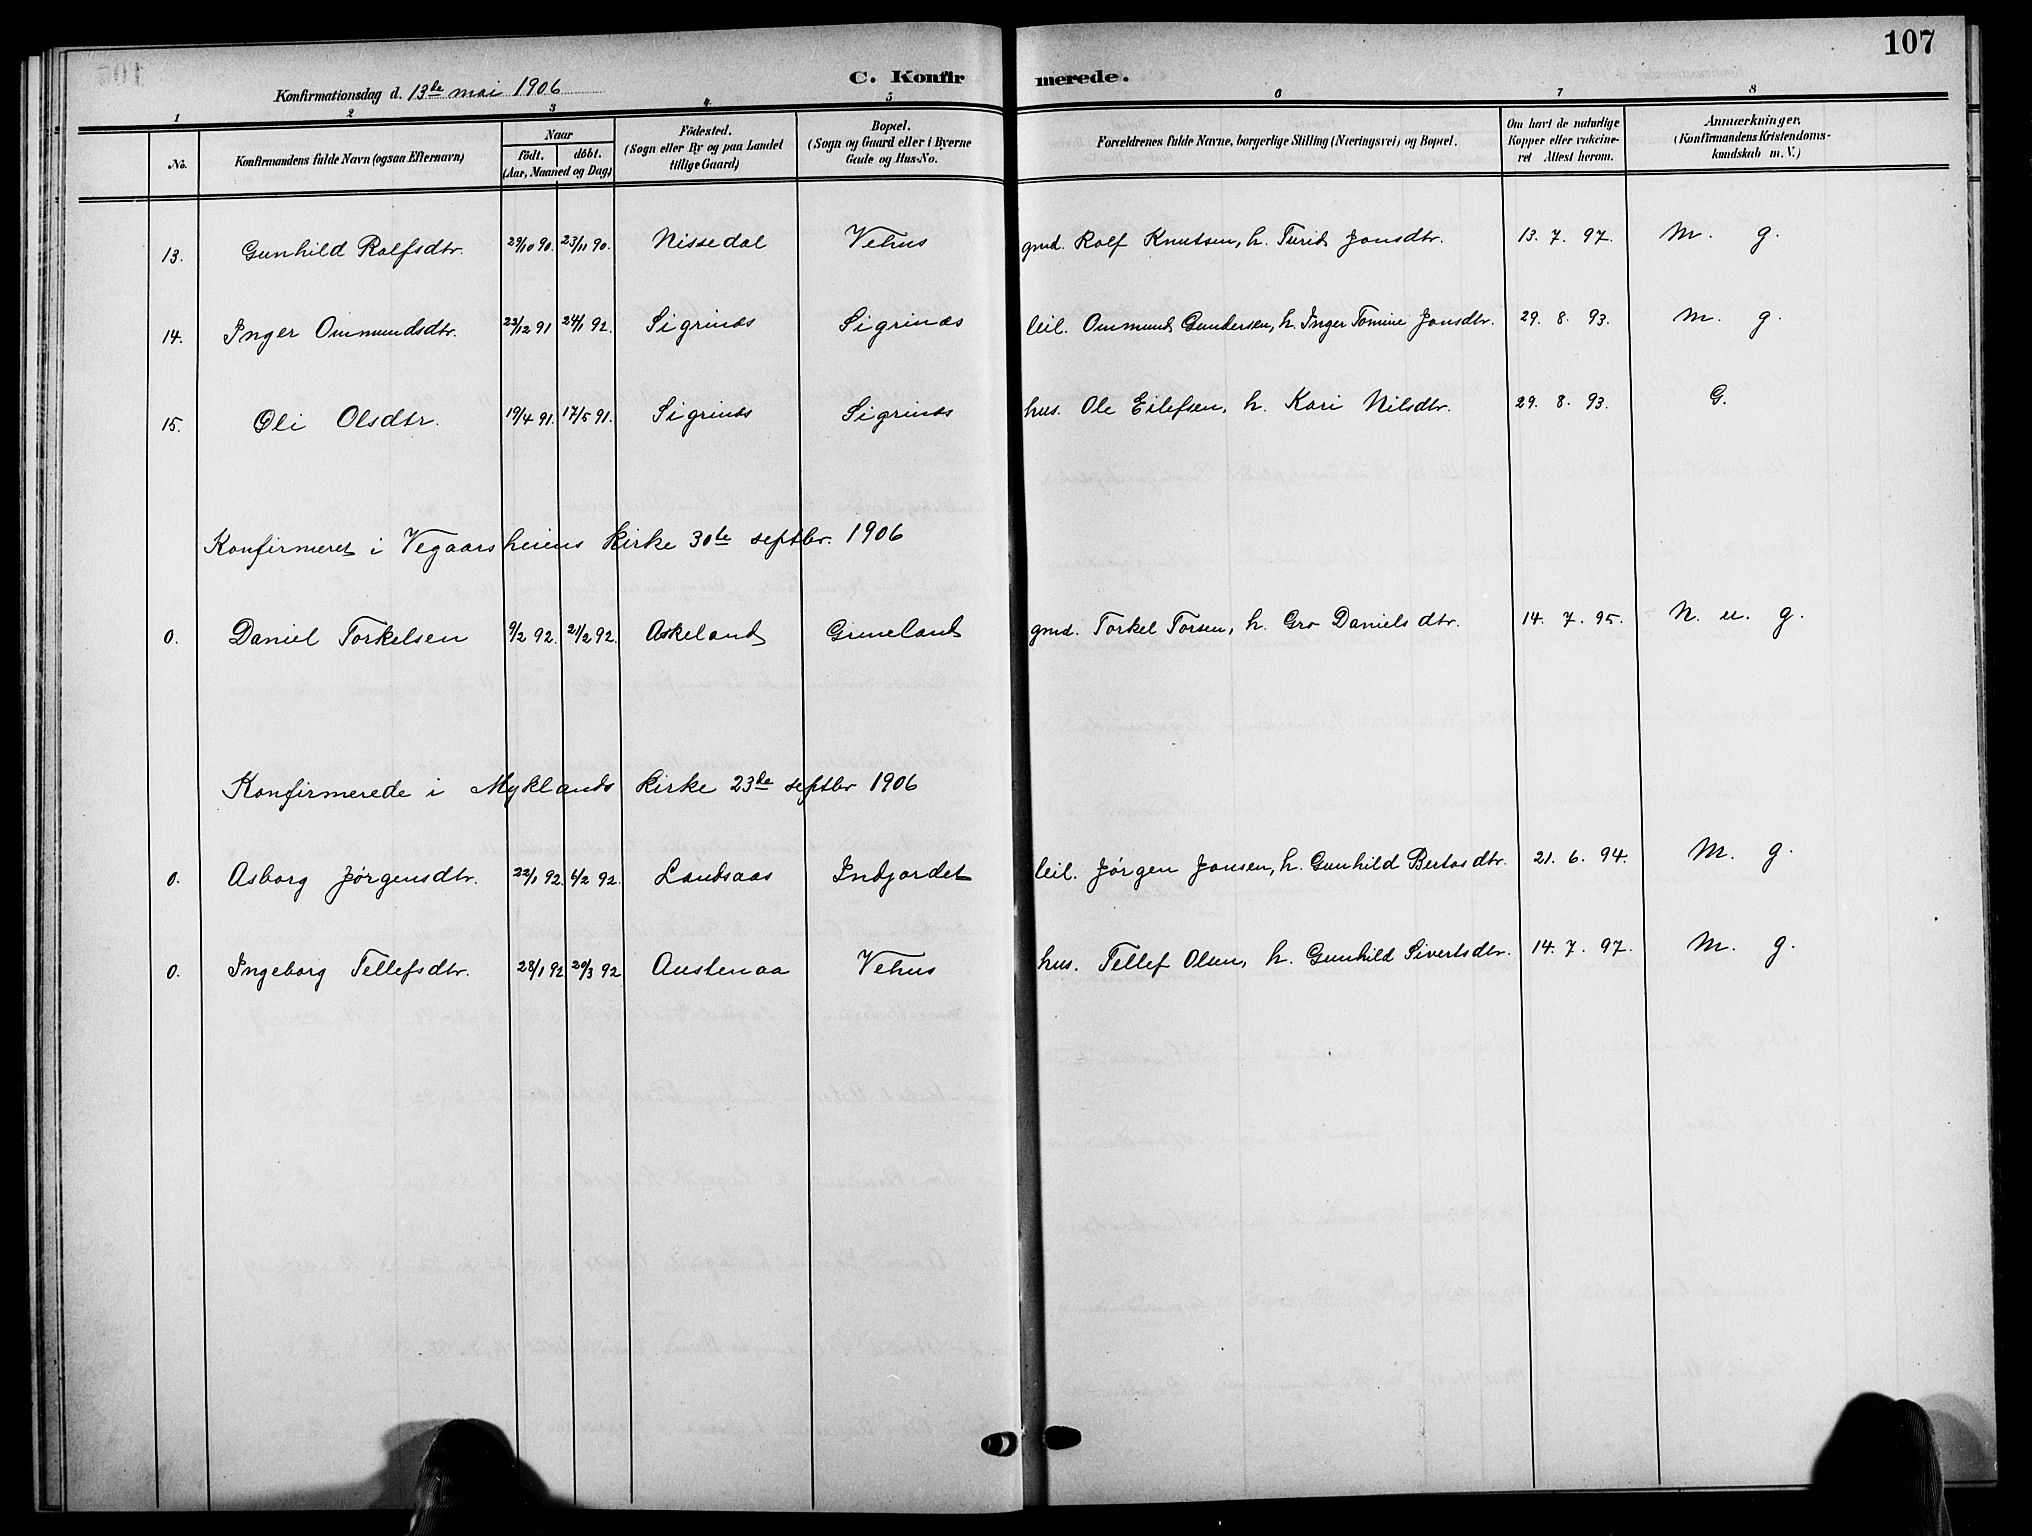 107
C. Konfirmerede.
Konfirmationsdag d. 13de mai 1906
1 2 3 4 5 6 7 8
No. Konfirmandens fulde Navn (ogsaa Efternavn) Naar født. døbt. (Aar, Maaned og Dag) Fødested. (Sogn eller By og paa Landet tillige Gaard) Bopæl. (Sogn og Gaard eller i Byerne Gade og Hus-No. Forældrenes fulde Navne, borgerlige Stilling (Næringsvei) og Bopæl. Om havt de naturlige Kopper eller vakcineret Attest herom. Anmærkninger. (Konfirmandens Kristendomskundskab m. V.)
13. Gunhild Rolfsdtr. 29/10 90. 23/11 90. Nissedal Vehus gmd. Rolf Knutsen, h. Turid Jonsdtr. 13. 7. 97. M. g.
14. Inger Ommundsdtr. 22/12 91 24/1 92. Sigrinæs Sigrinæs leil. Ommund Gundersen, h. Inger Tomine Jonsdtr. 29. 8. 93. M. g.
15. Oli Olsdtr. 19/4 91. 17/5 91. Sigrinæs Sigrinæs hus. Ole Eilefsen, h. Kari Nilsdtr. 29. 8. 93. G.
Konfirmeret i Vegaarsheiens kirke 30te septbr. 1906
0. Daniel Torkelsen 9/2 92. 21/2 92. Askeland Grineland gmd. Torkel Torsen, h. Gro Danielsdtr. 14. 7. 95. N. u. g.
Konfirmerede i Myklands kirke 23de septbr 1906
0. Asborg Jørgensdtr. 22/1 92. 6/2 92. Landsaas Indjordet leil. Jørgen Jonsen, h. Gunhild Bertosdtr. 21. 6. 94. M. g.
0. Ingeborg Tellefsdtr. 28/1 92 20/3 92 Austenaa Vehus hus. Tellef Olsen, h. Gunhild Sivertsdtr. 14. 7. 97. M. g.